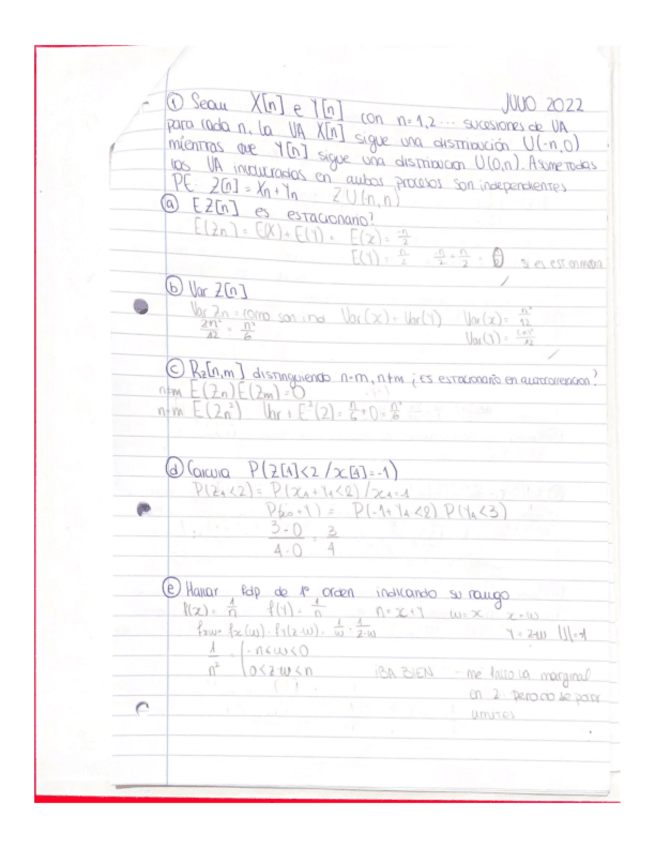 JULIO 2022
① Sean X[n] e Y[n] con n=1,2... sucesiones de VA
para cada n, la VA X[n] sigue una distribución U(-n,0)
mientras que Y[n] sigue una distribución U(0,n). Asume todas
las VA involucradas en ambos procesos son independientes
PE: Z[n] = Xn + Yn Z U(n,n)
ⓐ E Z[n] es estacionario?
E(Zn) = E(X) + E(Y) = E(x) = -n/2
E(Y) = n/2 -n/2 + n/2 = 0 si es est en media
ⓑ Var Z[n]
Var Zn = como son ind Var(X) + Var(Y) Var(x) = n²/12
2n²/12 = n²/6 Var(Y) = n²/12
ⓒ Rz[n,m] distinguiendo n=m, n≠m ¿es estacionario en autocorrelación?
n≠m E(Zn) E(Zm) = 0
n=m E(Zn²) Var + E²(Z) = n²/6 + 0 = n²/6
ⓓ Calcula P(Z[4]<2 / x[4]=-1)
P(Z4<2) = P(X4+Y4<2) / x4=-1
P(-1+Y4<2) P(Y4<3)
3-0/4-0 = 3/4
ⓔ Hallar fdp de 1º orden indicando su rango
f(x) = 1/n f(Y) = 1/n n=x+y w=x x=w
fzw = fx(w) · fy(z-w) = 1/w · 1/z-w Y=z-w |J|=1
1/n² { -n<w<0
0<z-w<n IBA BIEN - me falta la marginal
en z pero no se poner
limites